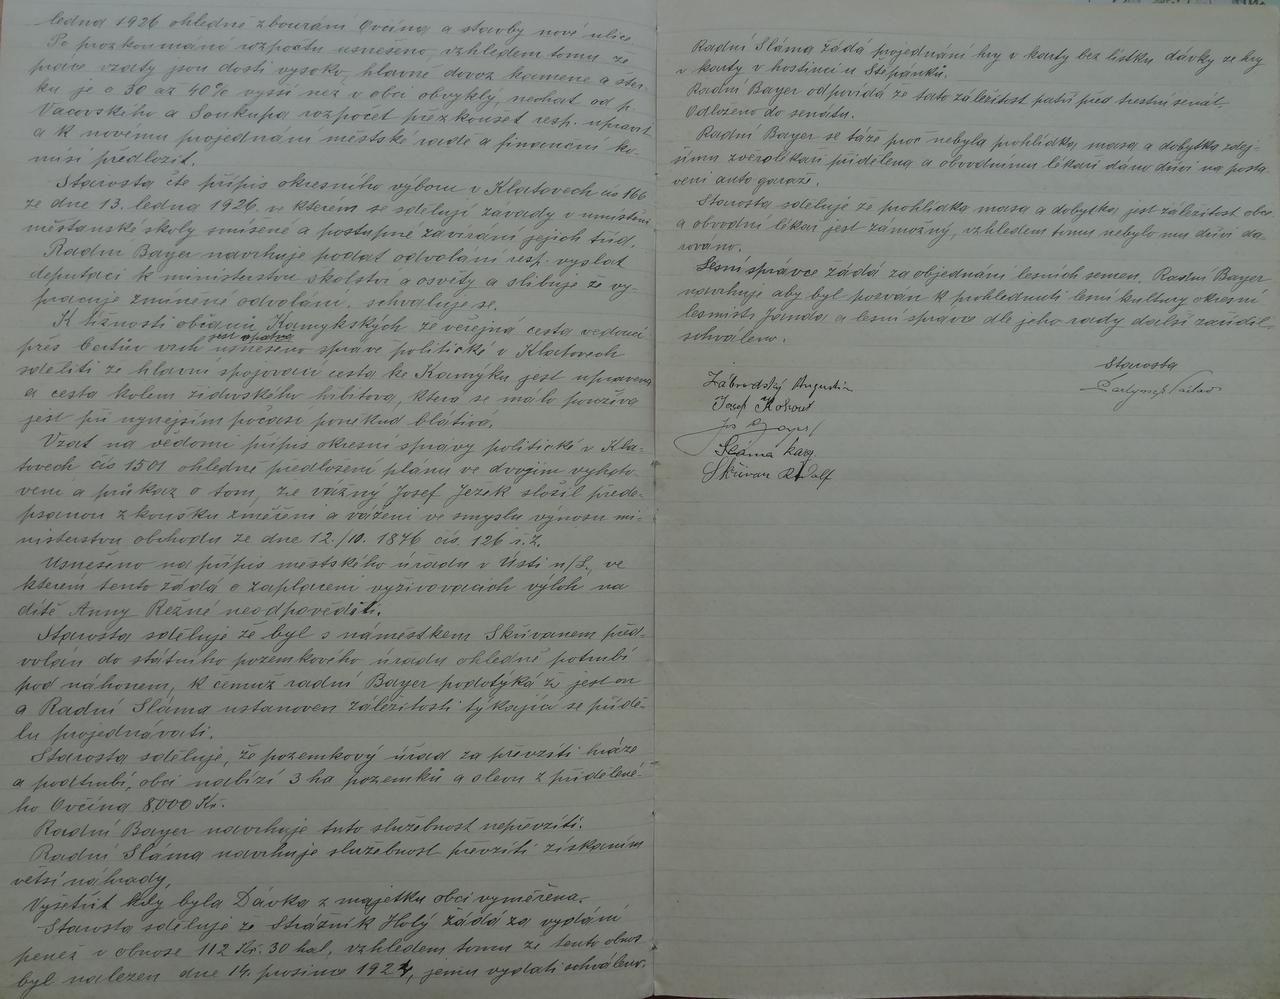 ledna 1926 ohledně zbourání Ovčína a stavby nové ulice
Po prozkoumání rozpočtu usneseno, vzhledem tomu že
práce vzaty jsou dosti vysoko, hlavně dovoz kamene a štěr-
ku je o 30 až 40% vyšší než v obci obvyklý, nechat od p.
Vacovského a Soukupa rozpočet přezkoušet resp. upravit
a k novému projednání městské radě a finanční ko-
misi předložit.
Starosta čte přípis okresního výboru v Klatovech čís 166
ze dne 13. ledna 1926, ve kterém se sdělují závady v umístění
měšťanské školy smíšené a postupné zavírání jejich tříd.
Radní Bayer navrhuje podat odvolání resp. vyslat
deputaci k ministerstvu školství a osvěty a slibuje že vy-
pracuje zmíněné odvolání, schvaluje se.
K tížnosti občanů Kamýkských že veřejná cesta vedoucí
přes Čertův vrch jest špatná usneseno správě politické v Klatovech
sděliti že hlavní spojovací cesta ke Kamýku jest upravena
a cesta kolem židovského hřbitova, která se málo používá
jest při nynějším počasí poněkud blátivá.
Vzat na vědomí přípis okresní správy politické v Kla-
tovech čís 1501 ohledně předložení plánu ve dvojím vyhoto-
vení a průkaz o tom, že vážný Josef Ježek složil přede-
psanou zkoušku změření a vážení ve smyslu výnosu mi-
nisterstva obchodu ze dne 12./10. 1876 čís. 126 ř.z.
Usneseno na přípis městského úřadu v Ústí n/L., ve
kterém tento žádá o zaplacení vyživovacích výloh na
dítě Anny Režné neodpověděti.
Starosta sděluje že byl s náměstkem Skřivanem před-
volán do státního pozemkového úřadu ohledně potrubí
pod náhonem, k čemuž radní Bayer podotýká že jest on
a Radní Sláma ustanoven záležitosti týkající se přídě-
lu projednávati.
Starosta sděluje, že pozemkový úřad za převzítí hráze
a podtrubí, obci nabízí 3 ha pozemků a slevu z přidělené-
ho Ovčína 8000 Kč.
Radní Bayer navrhuje tuto služebnost nepřevzíti.
Radní Sláma navrhuje služebnost převzíti získáním
větší náhrady,
Vyšetřit kdy byla Dávka z majetku obci vyměřena.
Starosta sděluje že Strážník Holý žádá za vydání
peněz v obnose 112 Kč. 30 hal, vzhledem tomu že tento obnos
byl nalezen dne 14. prosince 1924, jemu vydati schváleno.
Radní Sláma žádá projednání hry v karty bez lístku dávky ze hry
v karty v hostinci u Štěpánků.
Radní Bayer odpovídá že tato záležitost patří před trestní senát.
Odloženo do senátu.
Radní Bayer se táže proč nebyla prohlídka masa a dobytka zdej-
šímu zvěrolékaři přidělena a obvodnímu lékaři dáno dříví na posta
vení auto garaže.
Starosta sděluje že prohlídka masa a dobytka jest záležitost obce
a obvodní lékař jest zámožný, vzhledem tomu nebylo mu dříví da-
rováno.
Lesní správce žádá za objednání lesních semen. Radní Bayer
navrhuje aby byl pozván k prohlednutí lesní kultury okresní
lesmistr Janda a lesní správce dle jeho rady další zařídil,
schváleno.
Starosta
Zábrodský Augustin
Josef Kohout
Jos Bayer
Sláma Karg.
Skřivan Rudolf